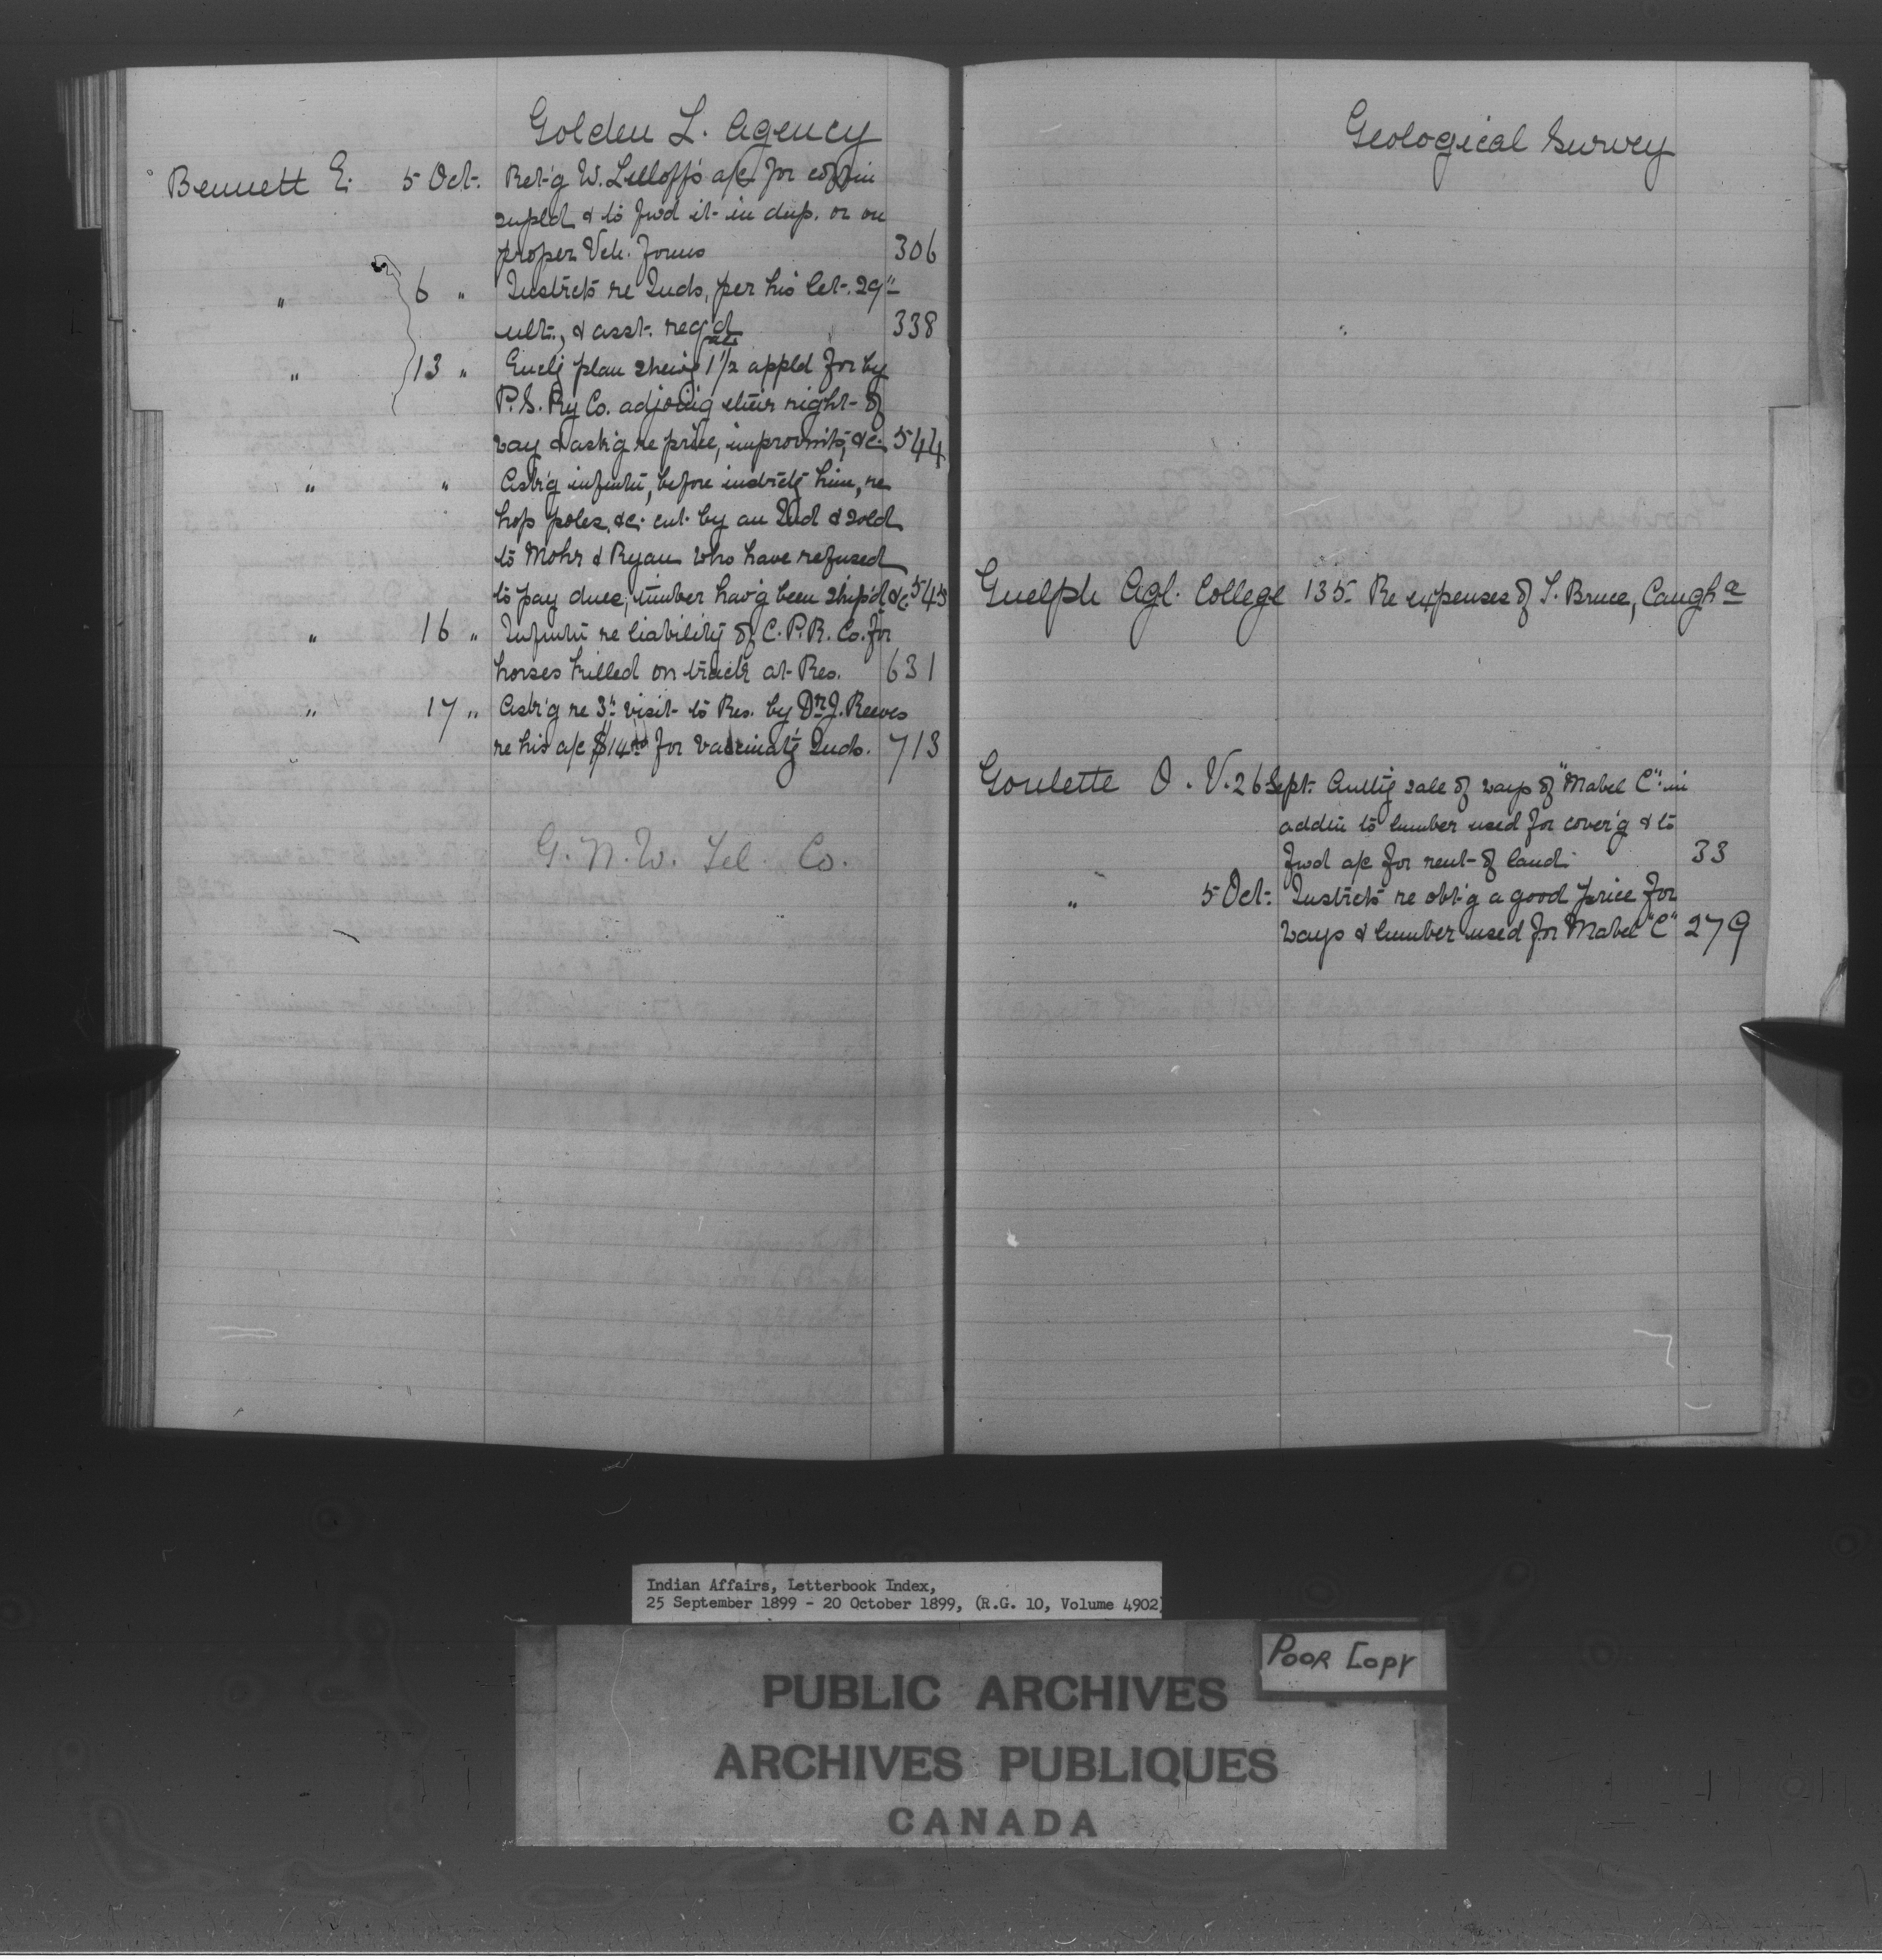 Golden L. Agency
Bennett E. 5 Oct. Ret'g W. Lilloff's a/c for coffin
supld & to fwd it in dup. or on
proper Vch. forms 306
" 6 " Instrcts re Inds, per his let. 29"
ult., & asst. reqd 338
" 13 " Enclg plan shewg 1 1/2 acs appld for by
P.S. Ry Co. adjoing their right of
way & ask'g re price, improvmts, &c. 544
" " Ask'g infmtn, before instrctg him, re
hop poles, &c. cut by an Ind & sold
to Mohr & Ryan who have refused
to pay dues, timber hav'g been ship'd &c. 545
" 16 " Infmtn re liability of C.P.R. Co. for
horses killed on track at Res. 631
" 17 " Ask'g re 3" visit to Res. by Dr J. Reeves
re his a/c $14.00 for vaccinatg Inds. 713
G.N.W. Tel. Co.
Geological Survey
Guelph Agl. College 135 Re expenses of T. Bruce, Caugha
Goulette O. V. 26 Sept. Authg sale of ways of "Mabel C" in
addtn to lumber used for cover'g & to
fwd a/c for rent of land. 33
" 5 Oct. Instrcts re obt'g a good price for
ways & lumber used for Mabel "C" 279
Indian Affairs, Letterbook Index,
25 September 1899 - 20 October 1899, (R.G. 10, Volume 4902)
POOR COPY
PUBLIC ARCHIVES
ARCHIVES PUBLIQUES
CANADA